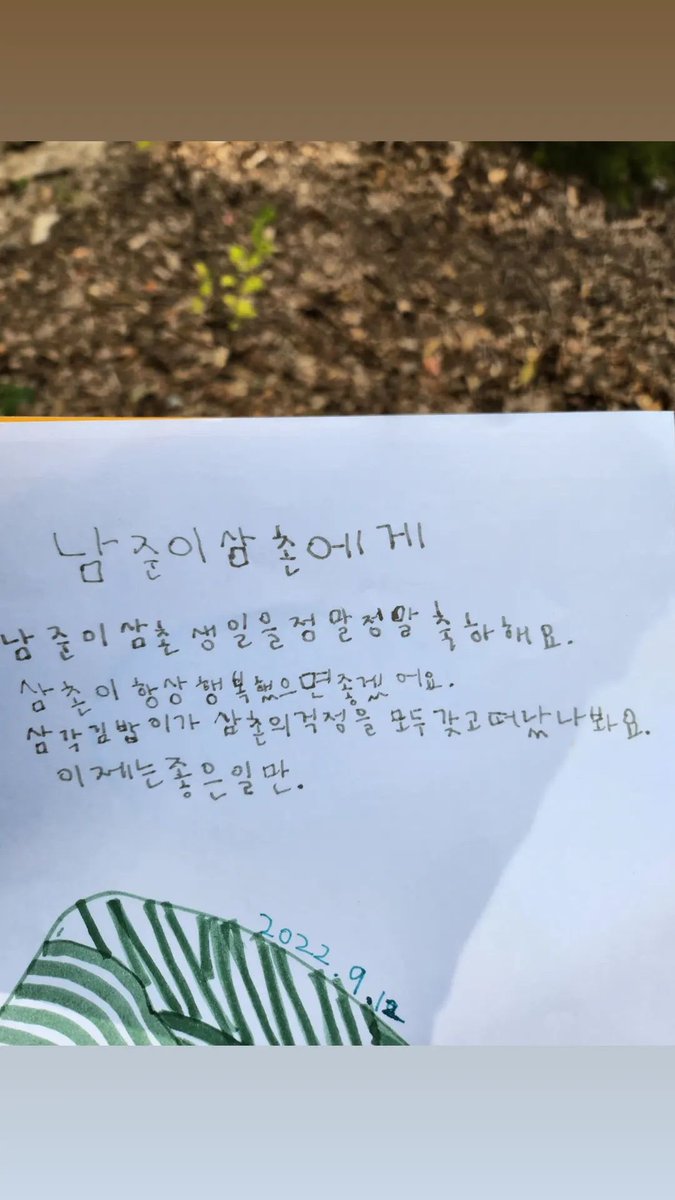 남준이삼촌에게
남준이삼촌 생일을정말정말 축하해요.
삼촌이 항상 행복했으면좋겠어요.
삼각김밥이가 삼촌의걱정을 모두갖고떠났나봐요.
이제는좋은일만.
2022.9.12